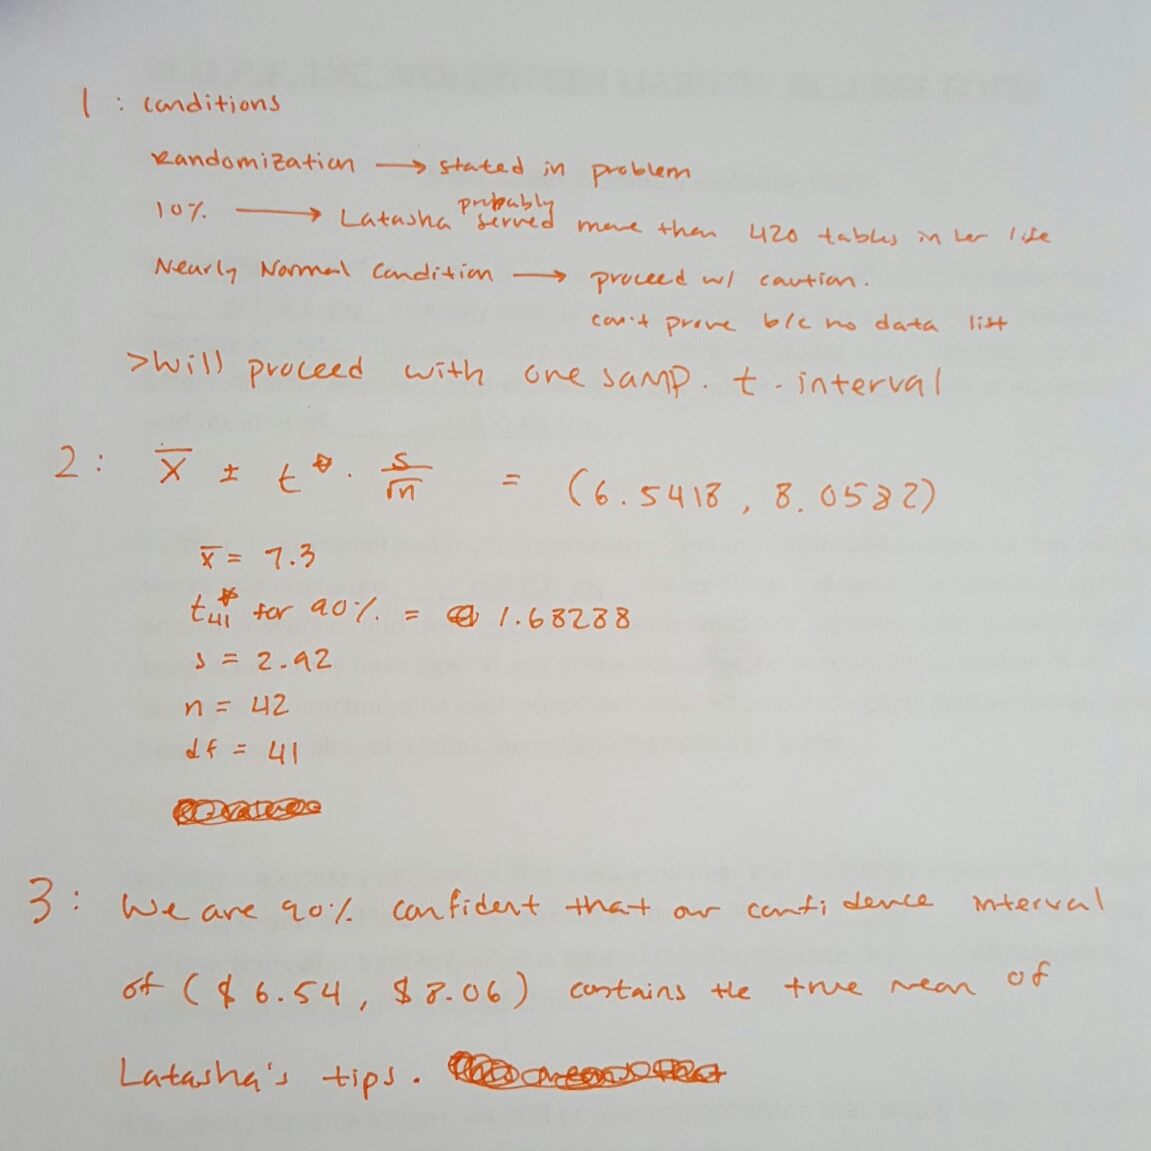 1 : conditions
Randomization → stated in problem
10% → Latasha probably served more than 420 tables in her life
Nearly Normal Condition → proceed w/ caution.
can't prove b/c no data list
>Will proceed with one samp. t-interval
2: x̄ ± t* · s/√n = (6.5418, 8.0582)
x̄ = 7.3
t41* for 90% = 1.68288
s = 2.92
n = 42
df = 41
3: We are 90% confident that our confidence interval
of ($6.54, $8.06) contains the true mean of
Latasha's tips.